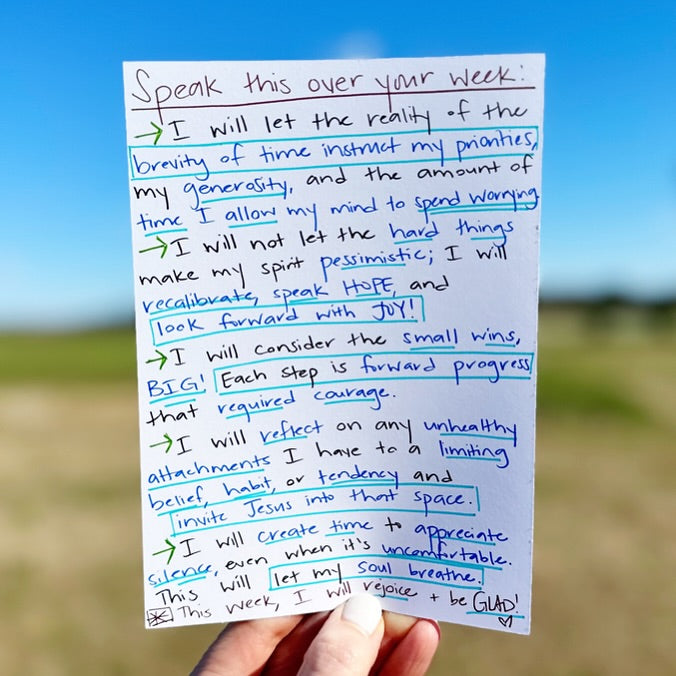 Speak this over your week:
→ I will let the reality of the
brevity of time instruct my priorities,
my generosity, and the amount of
time I allow my mind to spend worrying
→ I will not let the hard things
make my spirit pessimistic; I will
recalibrate, speak HOPE, and
look forward with JOY!
→ I will consider the small wins,
BIG! Each step is forward progress
that required courage.
→ I will reflect on any unhealthy
attachments I have to a limiting
belief, habit, or tendency and
invite Jesus into that space.
→ I will create time to appreciate
silence, even when it's uncomfortable.
This will let my soul breathe.
This week, I will rejoice + be GLAD!